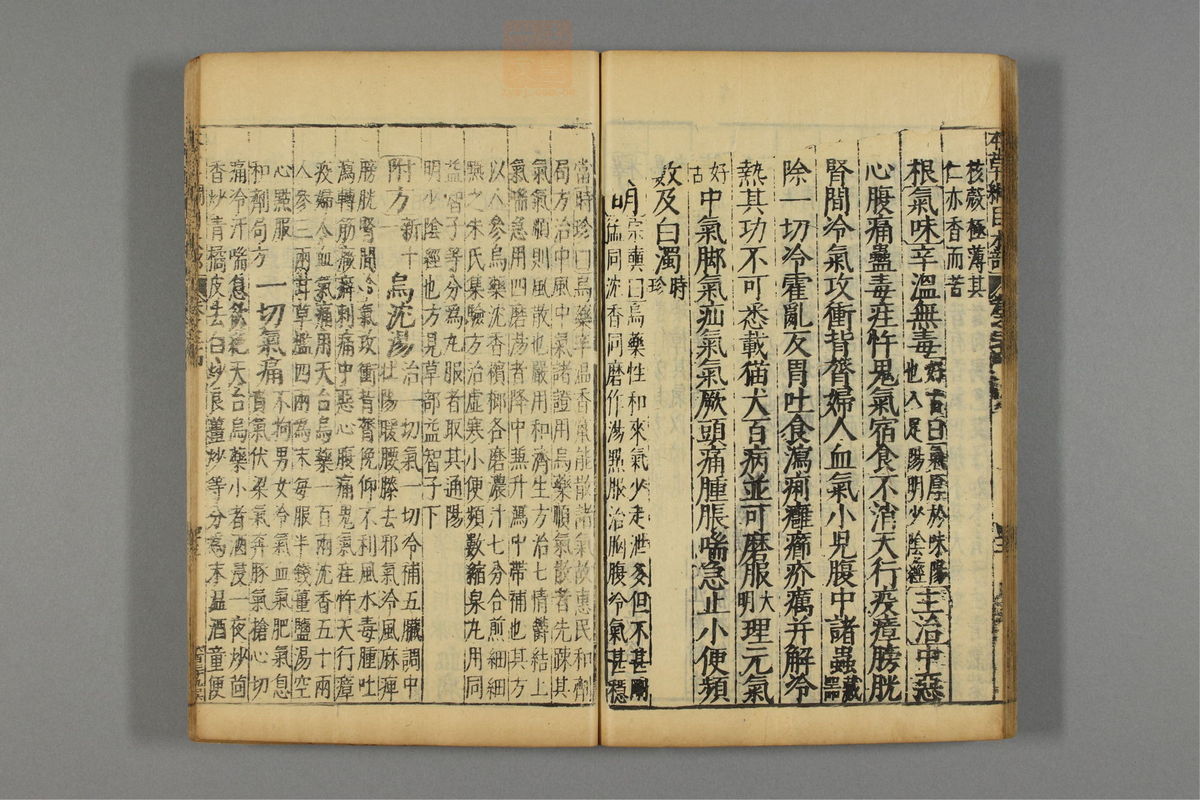 核殻極薄其
仁亦香而苦
根氣味辛溫無毒
好古曰氣厚於味陽
也入足陽明少陰經
主治中惡
心腹痛蠱毒疰忤鬼氣宿食不消天行疫瘴膀胱
腎間冷氣攻衝背膂婦人血氣小児腹中諸蟲藏器
除一切冷霍亂反胃吐食瀉痢癰癤疥癘并解冷
熱其功不可悉載猫犬百病並可磨服大明理元氣
好古中氣脚氣疝氣氣厥頭痛腫脹喘急止小便頻
數及白濁時珍
明宗奭曰烏藥性和來氣少走泄多但不甚剛
猛同沈香同磨作湯㸃服治胸腹冷氣甚穩
當時珍曰烏藥辛溫香竄能散諸氣故惠民和劑
局方治中風中氣諸證用烏藥順氣散者先疎其
氣氣順則風散也嚴用和濟生方治七情鬱結上
氣喘急用四磨湯者降中兼升瀉中帶補也其方
以人參烏藥沈香檳榔各磨濃汁七分合煎細細
嚥之朱氏集驗方治虚寒小便頻數縮泉丸用同
益智子等分為丸服者取其通陽
明少陰經也方見草部益智子下
附方新十一烏沈湯治一切氣一切冷補五臟調中
壯陽暖腰膝去邪氣冷風麻痺
膀胱腎間冷氣攻衝背膂俛仰不利風水毒腫吐
瀉轉筋癥癖刺痛中惡心腹痛鬼氣疰忤天行瘴
疫婦人血氣痛用天台烏藥一百兩沈香五十兩
人參三兩甘草爁四兩為末每服半錢薑鹽湯空
心㸃服和劑局方
一切氣痛不拘男女冷氣血氣肥氣息
賁氣伏梁氣奔豚氣搶心切
痛冷汗喘息欲絶天台烏藥小者酒浸一夜炒茴
香炒青橘皮去白炒良薑炒等分為末温酒童便